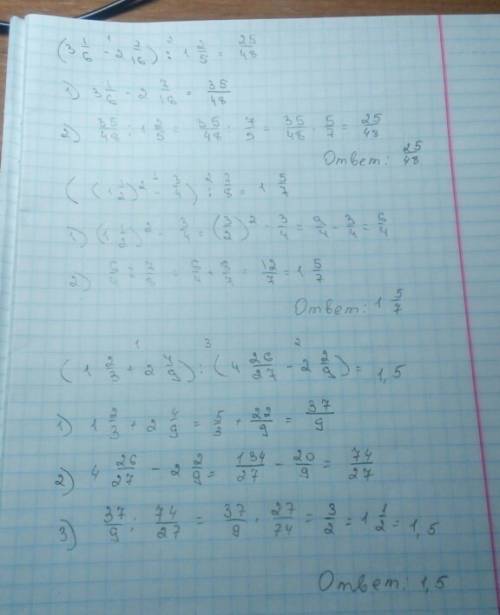 (3 1/6 - 2 7/16) : 1 2/5 = 25/48
1) 3 1/6 - 2 7/16 = 35/48
2) 35/48 : 1 2/5 = 35/48 : 7/5 = 35/48 · 5/7 = 25/48
Ответ: 25/48
1) (1 1/2)² - 3/4 = (3/2)² - 3/4 = 9/4 - 3/4 =
Ответ: 1 5/7
(1 2/3 + 2 4/9) : (4 26/27 - 2 2/9) = 1,5
1) 1 2/3 + 2 4/9 = 5/3 + 22/9 = 37/9
2) 4 26/27 - 2 2/9 = 134/27 - 20/9 = 74/27
3) 37/9 : 74/27 = 37/9 · 27/74 = 3/2 = 1 1/2 = 1,5
Ответ: 1,5